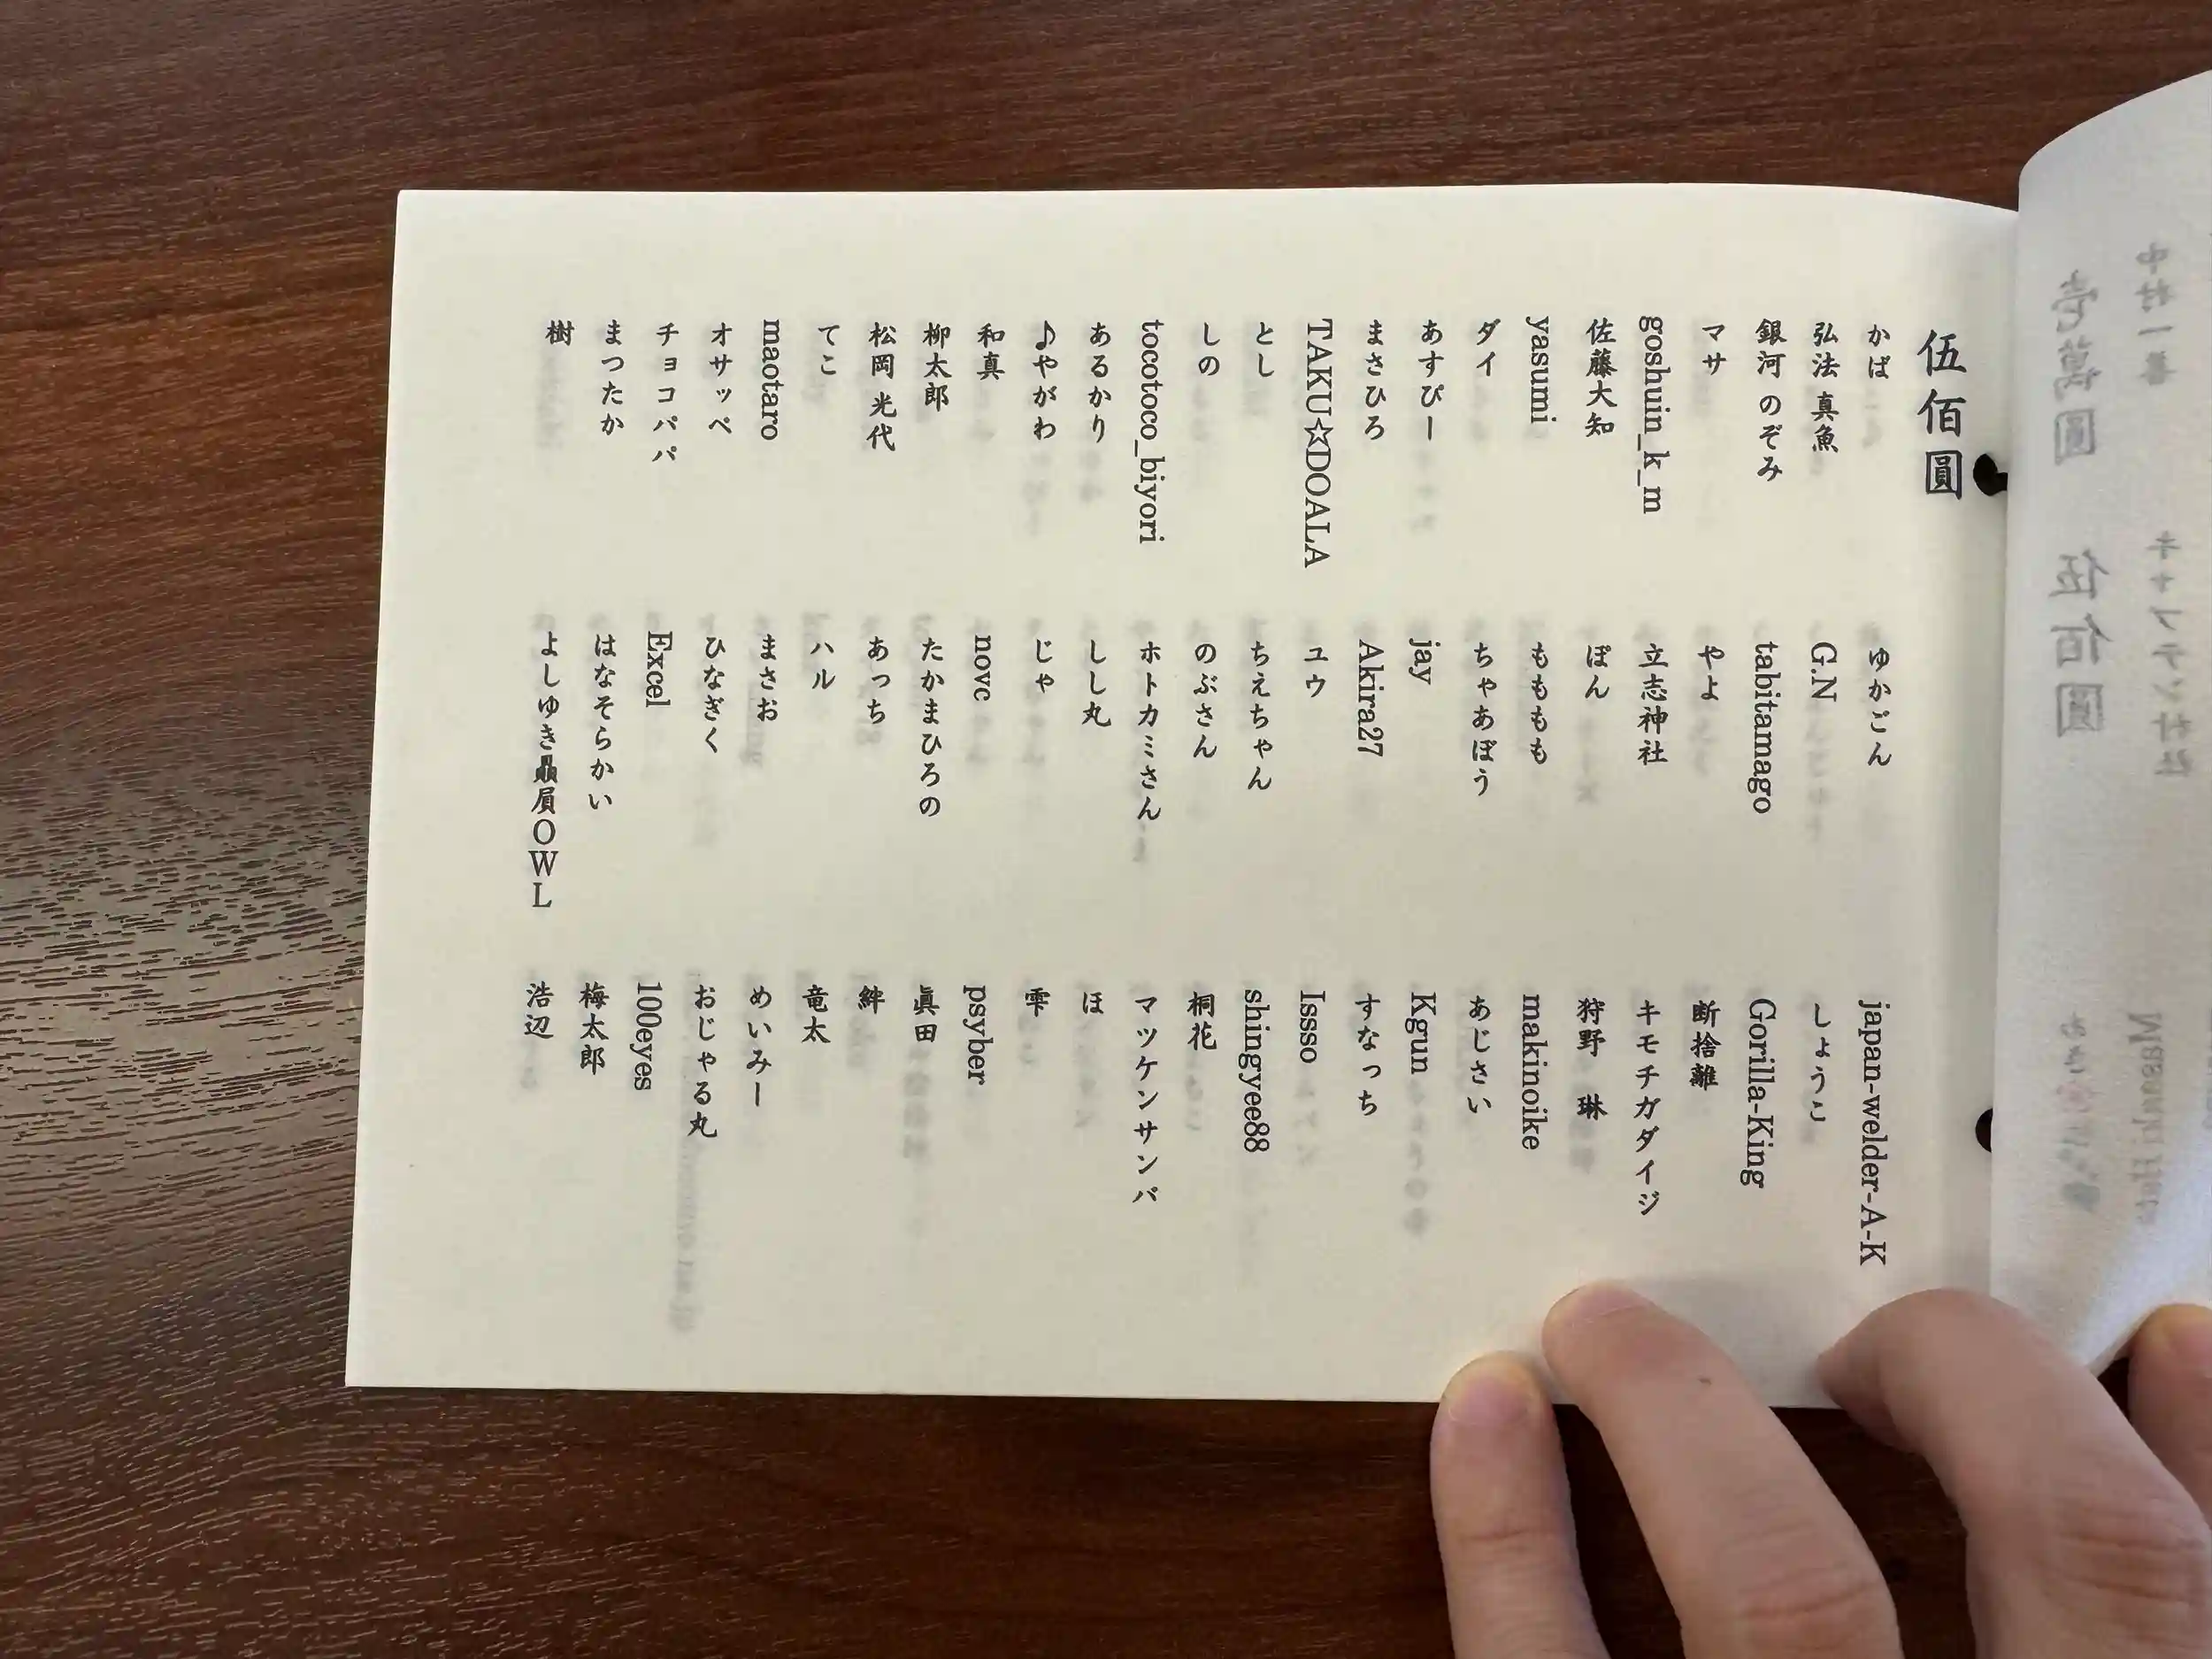 伍佰圓
かば
弘法 真魚
銀河 のぞみ
マサ
goshuin_k_m
佐藤大知
yasumi
ダイ
あすぴー
まさひろ
TAKU☆DOALA
とし
しの
tocotoco_biyori
あるかり
♪やがわ
和真
柳太郎
松岡 光代
てこ
maotaro
オサッペ
チョコパパ
まつたか
樹
ゆかごん
G.N
tabitamago
やよ
立志神社
ぽん
もももも
ちゃあぼう
jay
Akira27
ユウ
ちえちゃん
のぶさん
ホトカミさん
しし丸
じゃ
novc
たかまひろの
あっち
ハル
まさお
ひなぎく
Excel
はなそらかい
よしゆき贔屓OWL
japan-welder-A-K
しょうこ
Gorilla-King
断捨離
キモチガダイジ
狩野 琳
makinoike
あじさい
Kgun
すなっち
Issso
shingyee88
桐花
マツケンサンバ
ほ
雫
psyber
眞田
絆
竜太
めいみー
おじゃる丸
100eyes
梅太郎
浩辺